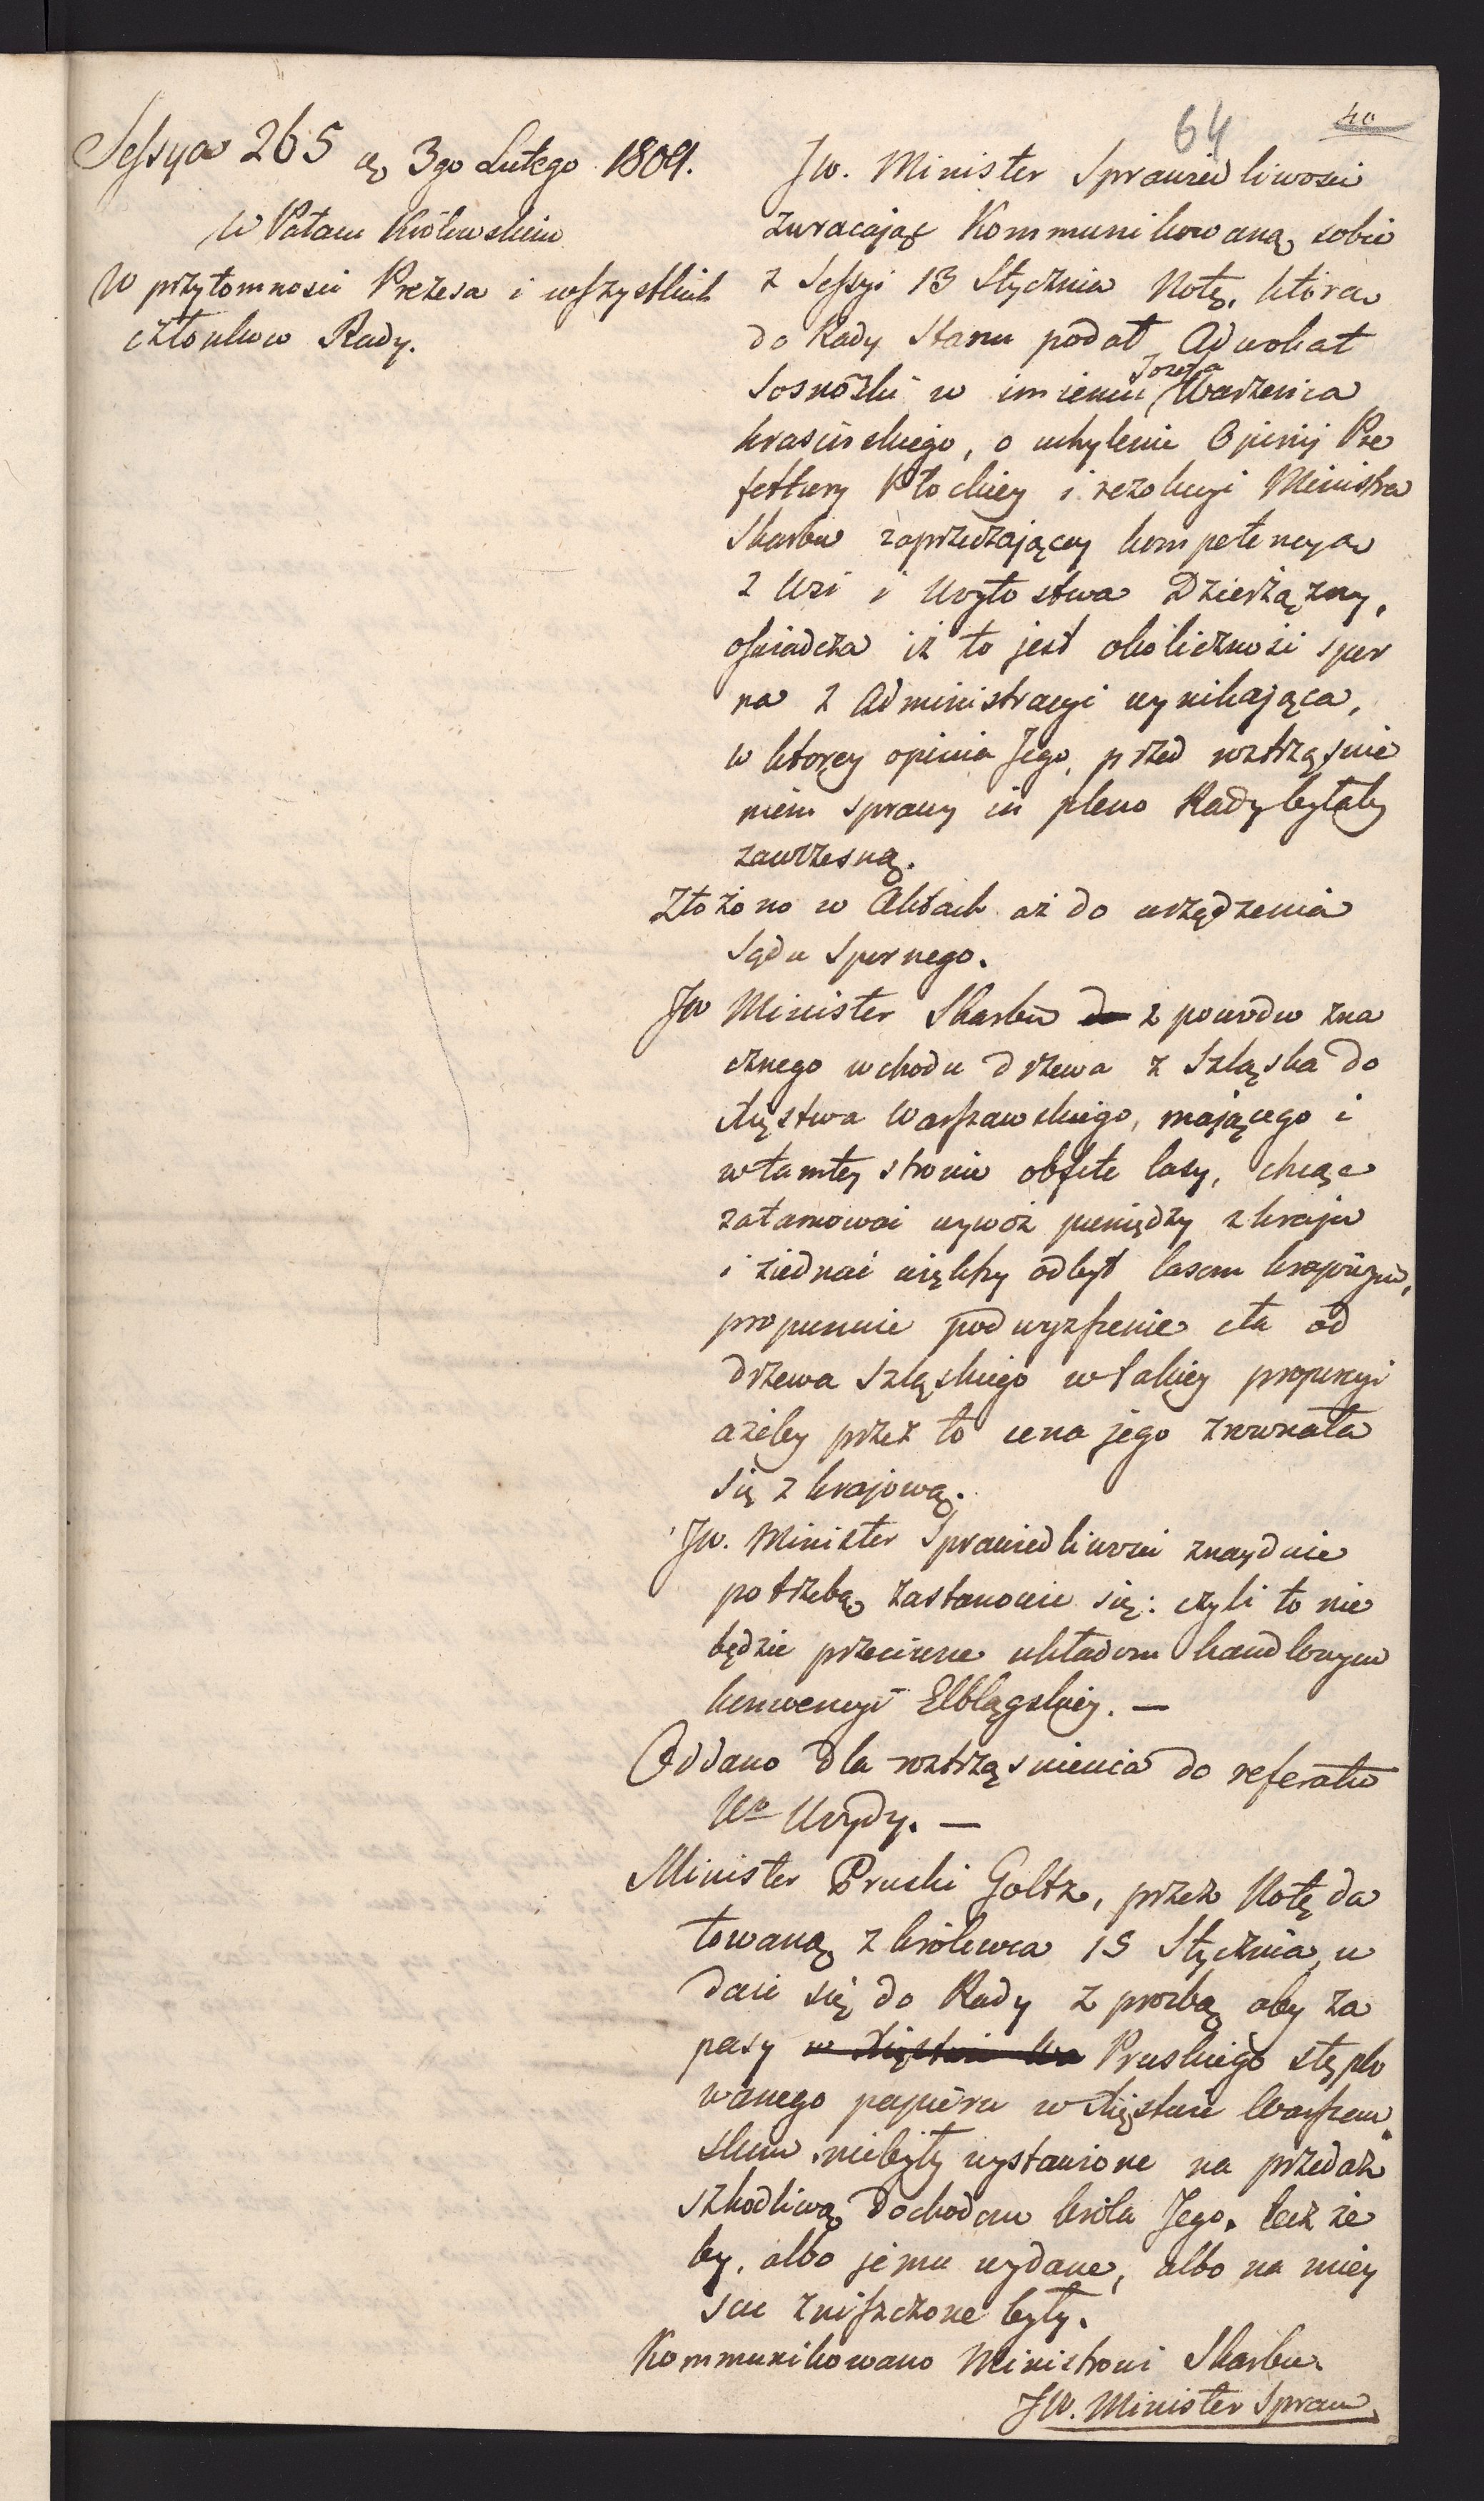 64
40
Sessya 265 d. 3go Lutego 1809.
W Pałacu Królewskim
W przytomnosci Prezesa i wszystkich
członkow Rady.
JW. Minister Sprawiedliwosci
zwracaiąc Kommunikowaną sobie
z Sessyi 13 Stycznia Notę, którą
do Rady Stanu podał Adwokat
Jozefa
Sosnozki w imieniu Warzenica
krasinskiego, o uchylenie Opinij Pre
fektury Płockiey i rezolucyi Ministra
Skarbu zaprzeczającey kompetencya
z Wsi i Woytostwa Dzierżązny,
oswiadcza iż to jest okoliczność spor
na z Administracyi wynikająca,
w ktorey opinia Jego, przed roztrząsnie
niem sprawy in pleno Rady byłaby
zawczesną.
Złożono w Aktach aż do urządzenia
Sądu Spornego.
JW Minister Skarbu z powodu zna
cznego wchodu drzewa z Szląska do
Xięstwa Warszawskiego, mającego i
w tamtey stronie obfite lasy, chcąc
zatamować wywóz pieniędzy z kraju
i ziednać większy odbyt lasom krajowym,
proponuie podwyższenie cła od
drzewa Szląskiego w takiey proporcyi
ażeby przez to cena jego zrownała
się z krajową.
JW. Minister Sprawiedliwosci znayduie
potrzebą zastanowić się: czyli to nie
będzie przeciwne układom handlowym
konwencyi Elblągskiey. —
Oddano dla roztrząsnienia do referatu
Wo Woydy. —
Minister Pruski Goltz, przez Notę da
towaną z Królewca 15 Stycznia, u
daie się do Rady z prozbą aby za
pasy w Xięstwie Wa Pruskiego stęplo
wanego papieru w Xięstwie Warszaw
skim niebyły wystawione na przedaż
szkodliwą dochodom króla Jego, lecz że
by, albo jemu wydane, albo na miey
scu zniszczone były.
Kommunikowano Ministrowi Skarbu
JW. Minister Spraw